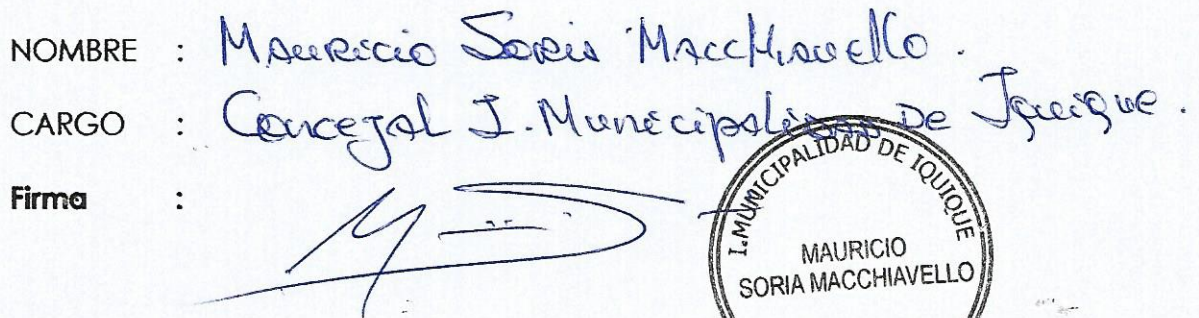 NOMBRE : Mauricio Soria Macchiavello.
CARGO : Concejal I. Municipalidad De Iquique.
Firma :
I. MUNICIPALIDAD DE IQUIQUE
MAURICIO
SORIA MACCHIAVELLO